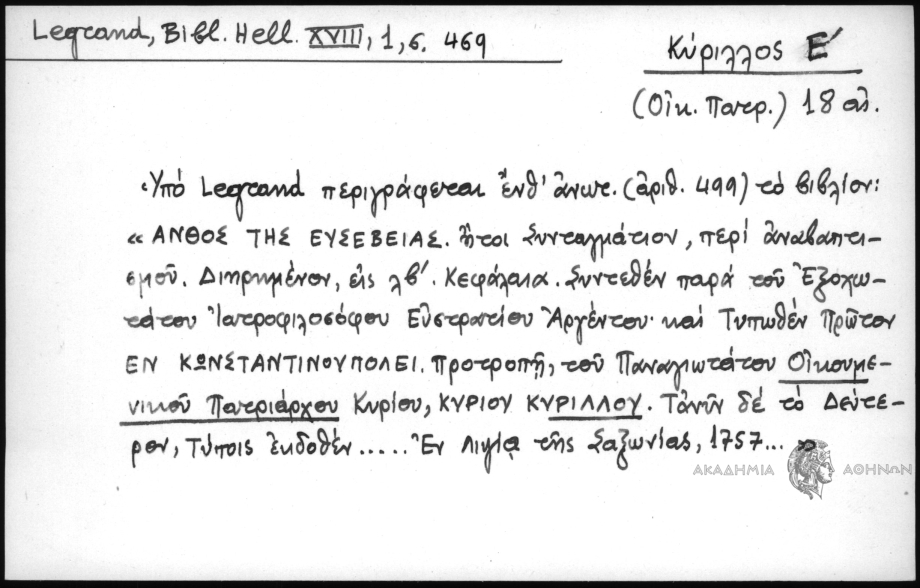 Legrand, Bibl. Hell. XVIII, 1, σ. 469
Κύριλλος Ε΄
(Οἰκ. Πατρ.) 18 αἰ.
Ὑπό Legrand περιγράφεται ἔνθ' ἄνωτ. (ἀριθ. 499) τό βιβλίον:
« ΑΝΘΟΣ ΤΗΣ ΕΥΣΕΒΕΙΑΣ. ἤτοι Συνταγμάτιον, περί ἀναβαπτι-
σμοῦ. Διῃρημένον, εἰς λβ'. Κεφάλαια. Συντεθέν παρά τοῦ Ἐξοχω-
τάτου Ἰατροφιλοσόφου Εὐστρατίου Ἀργέντου· καί Τυπωθέν Πρῶτον
ΕΝ ΚΩΝΣΤΑΝΤΙΝΟΥΠΟΛΕΙ. Προτροπῇ, τοῦ Παναγιωτάτου Οἰκουμε-
νικοῦ Πατριάρχου Κυρίου, ΚΥΡΙΟΥ ΚΥΡΙΛΛΟΥ. Τανῦν δέ τό Δεύτε-
ρον, Τύποις ἐκδοθέν ..... Ἐν Λιψίᾳ τῆς Σαξωνίας, 1757... »
ΑΚΑΔΗΜΙΑ ΑΘΗΝΩΝ